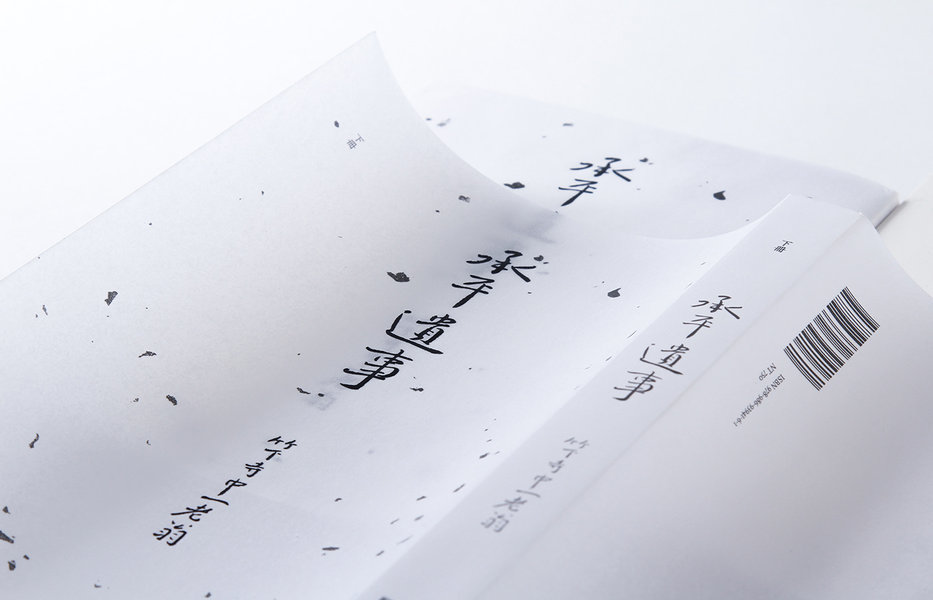 下冊
承平
承平遺事
竹下寺中一老翁
下冊
承平遺事
竹下寺中一老翁
ISBN 978-986-93941-6-1
NT 750